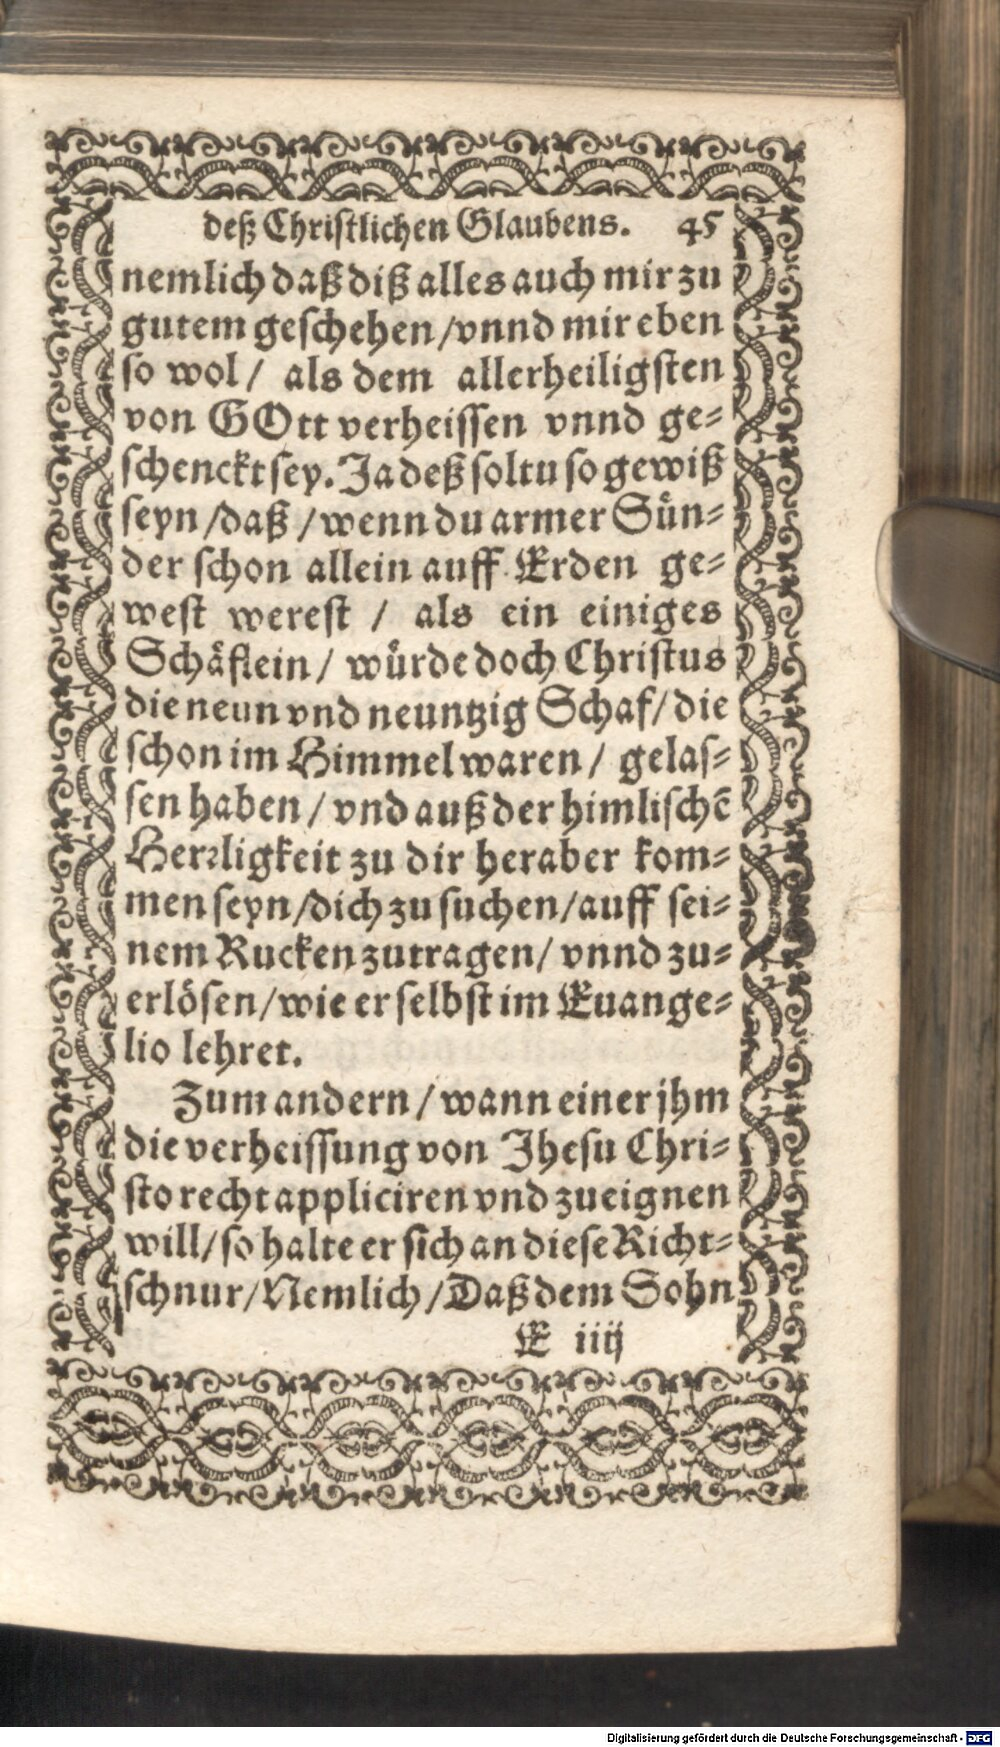 deß Christlichen Glaubens. 45
nemlich daß diß alles auch mir zu
gutem geschehen /vnnd mir eben
so wol / als dem allerheiligsten
von GOtt verheissen vnnd ge-
schenckt sey. Ja deß soltu so gewiß
seyn /daß /wenn du armer Sün-
der schon allein auff Erden ge-
west werest / als ein einiges
Schäflein / würde doch Christus
die neun vnd neuntzig Schaf/ die
schon im Himmel waren / gelas-
sen haben / vnd auß der himlischē
Herrligkeit zu dir heraber kom-
men seyn /dich zu suchen /auff sei-
nem Rucken zutragen/ vnnd zu-
erlösen /wie er selbst im Euange-
lio lehret.
Zum andern / wann einer jhm
die verheissung von Jhesu Chri-
sto recht appliciren vnd zueignen
will/so halte er sich an diese Richt-
schnur /Nemlich /Daß dem Sohn
E iiij
Digitalisierung gefördert durch die Deutsche Forschungsgemeinschaft - DFG